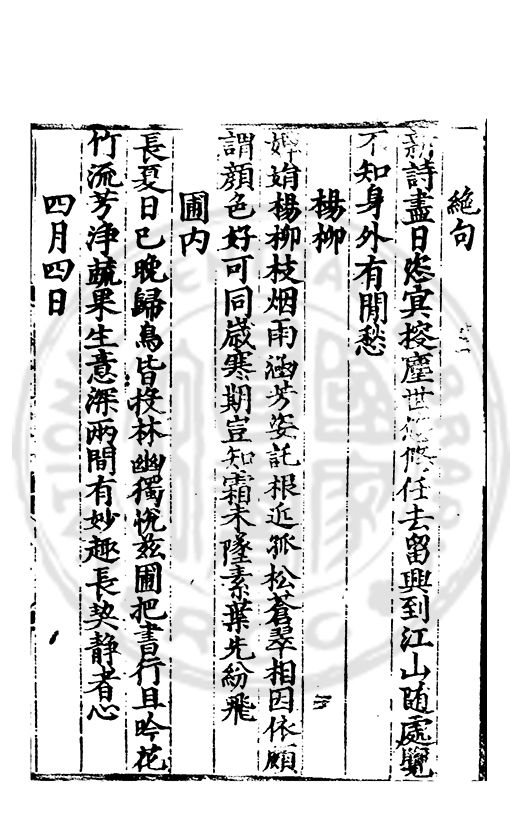 絕句
新詩盡日恣冥搜塵世悠悠任去留興到江山随處覽
不知身外有閒愁
楊柳
娟楊柳枝烟雨涵芳姿託根近孤松蒼翠相因依顧
謂顔色好可同嵗寒期豈知霜未墜素葉先紛飛
圃内
長夏日已晚歸鳥皆投林幽獨悅兹圃把書行且吟花
竹流芳淨蔬果生意深兩間有妙趣長契静者心
四月四日